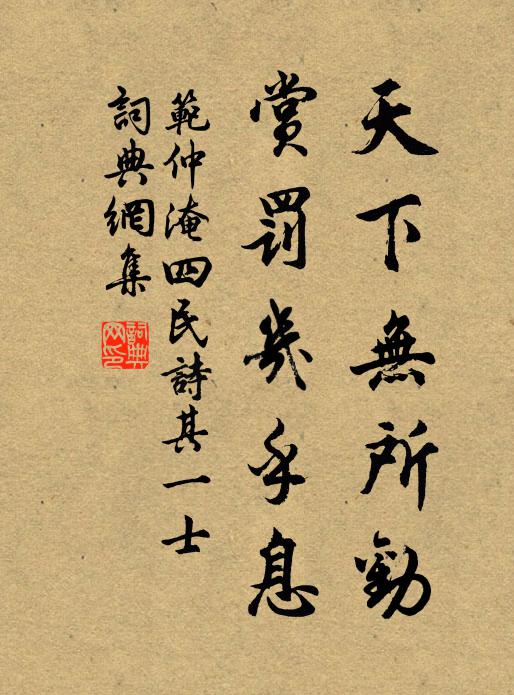 天下無所勸
賞罰幾乎息
範仲淹四民詩其一士
詞典網集
詞典网印